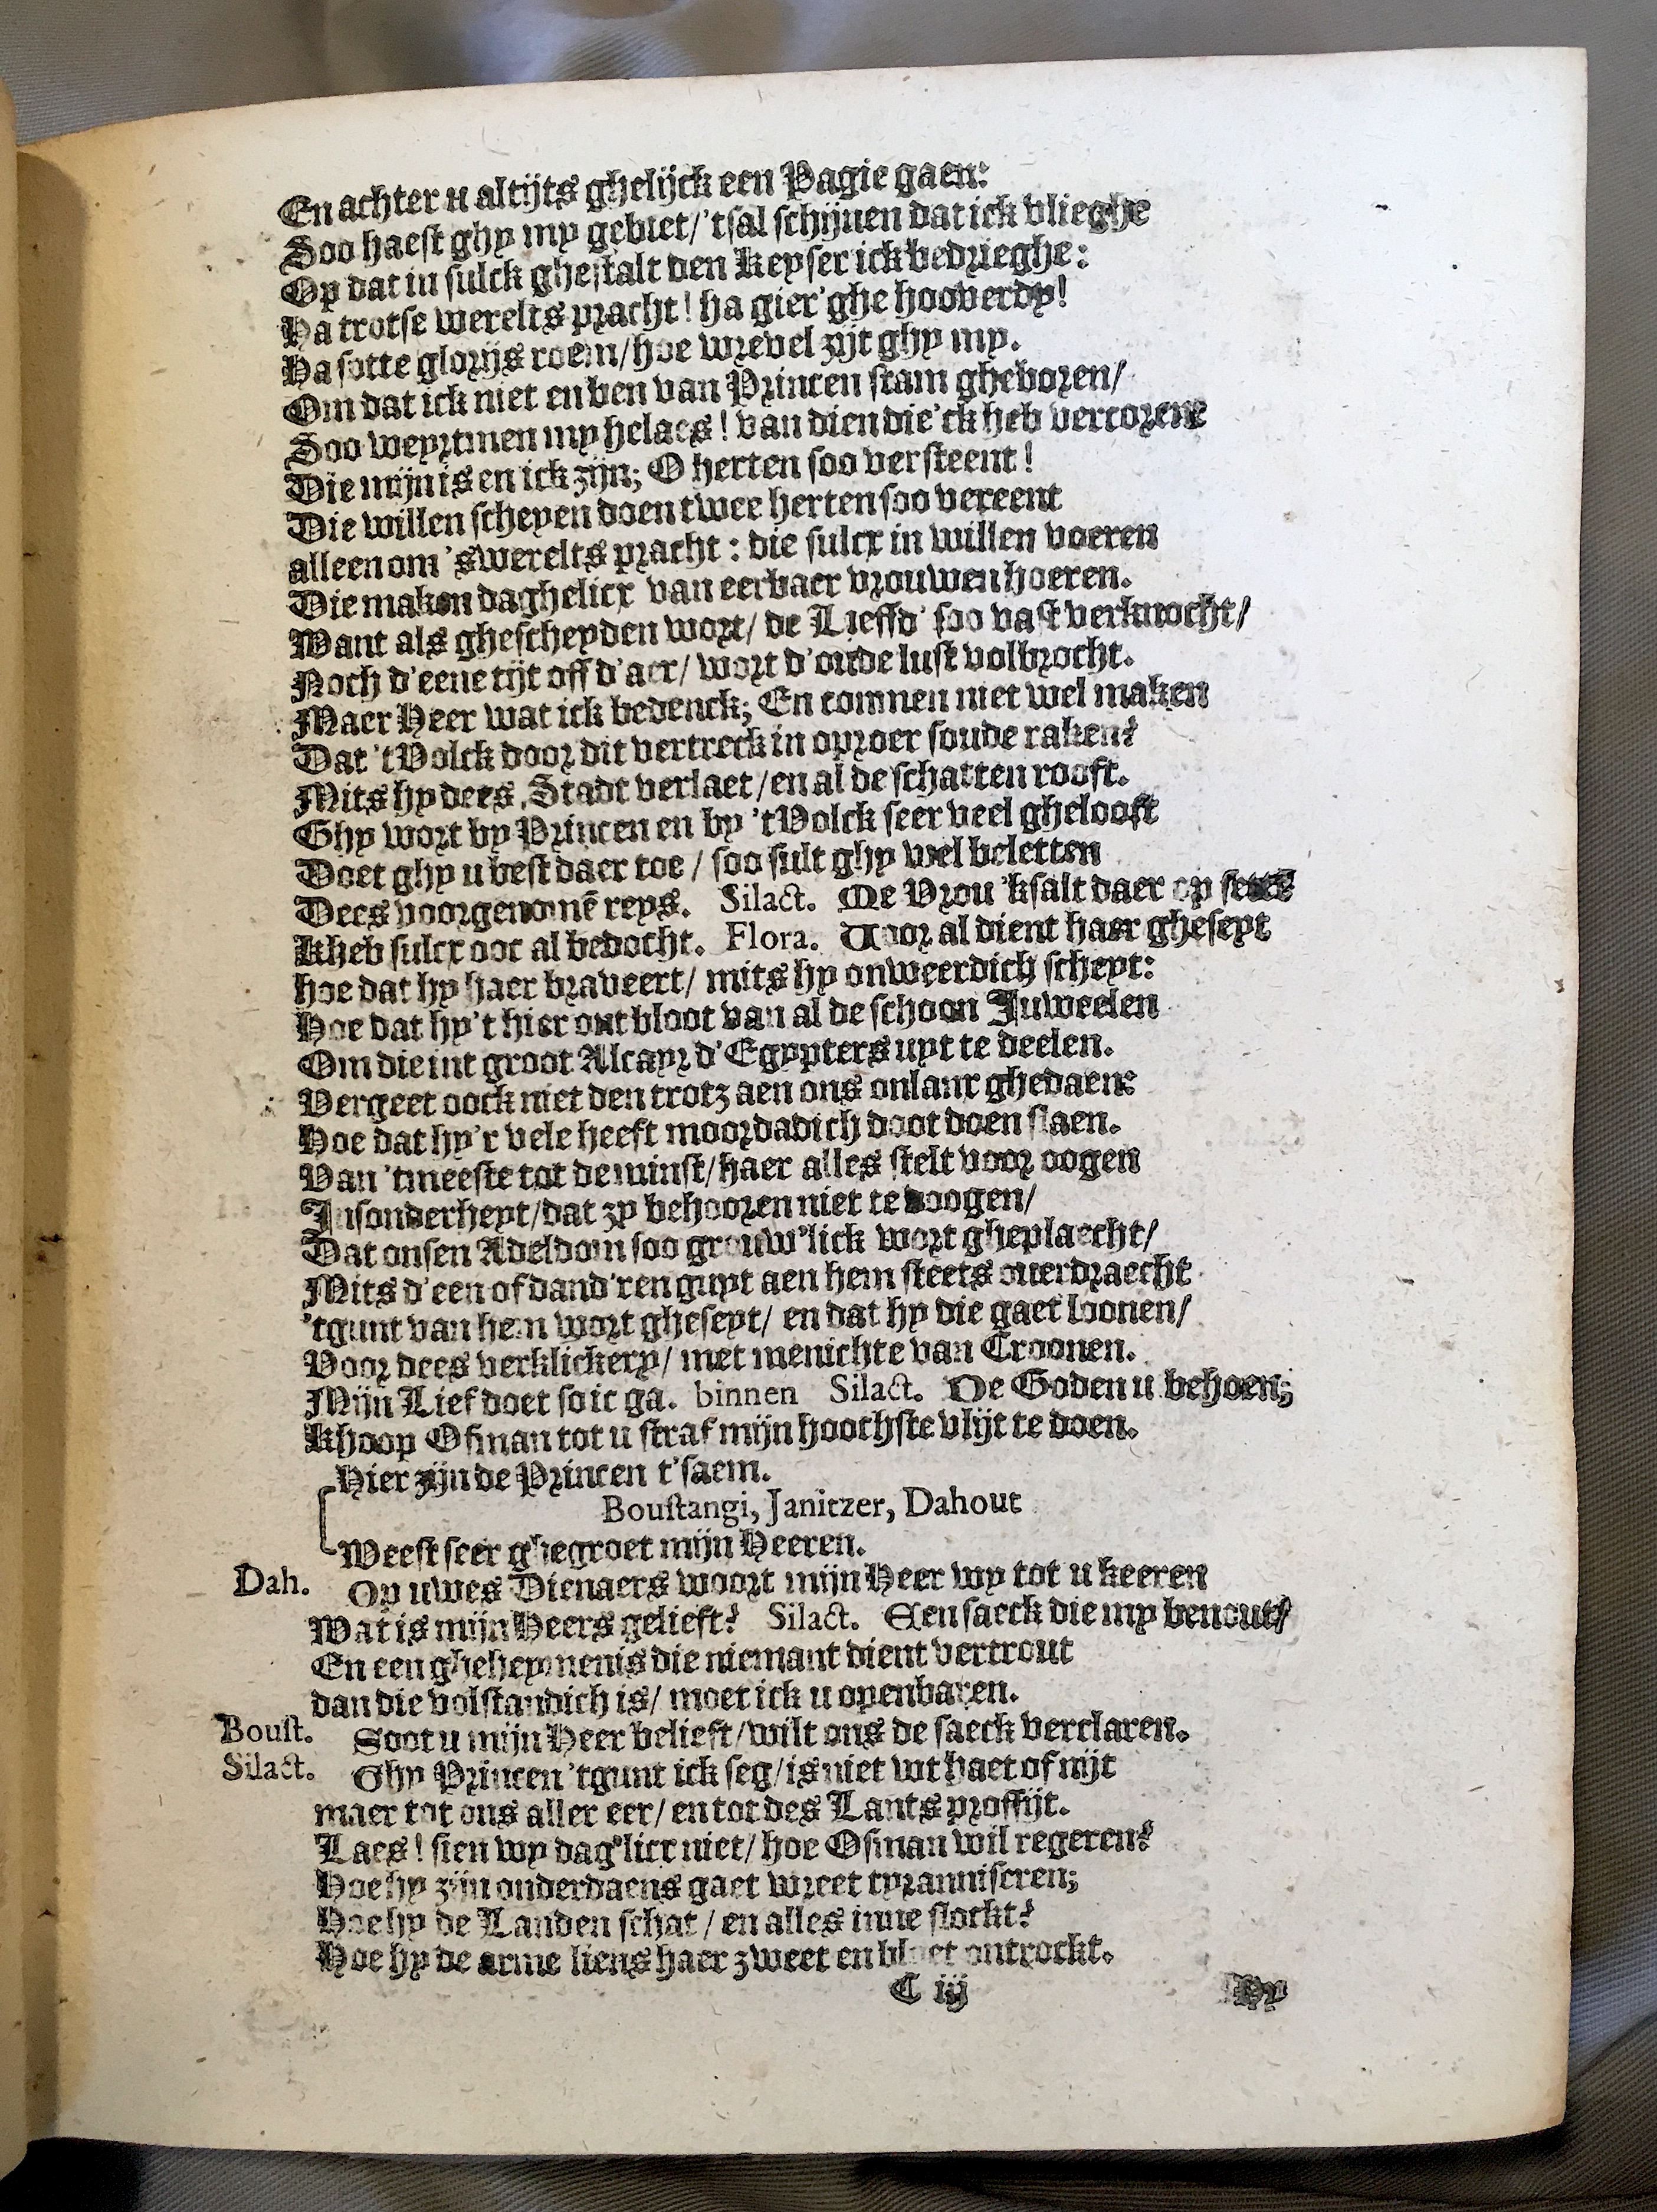 En achter u altijts ghelijck een Pagie gaen:
Soo haest ghy my gebiet/ 'tsal schijnen dat ick vlieghe
Op dat in sulck ghestalt den Keyser ick bedrieghe:
Ha trotse werelts pracht! ha gier'ghe hooverdy!
Ha sotte glorijs roem/ hoe wrevel zijt ghy my.
Om dat ick niet en ben van Princen stam gheboren/
Soo weyrtmen my helaes! van dien die 'ck heb vercorene
Die mijn is en ick zijn; O herten soo versteent!
Die willen scheyen doen twee herten soo vereent
alleen om 'swerelts pracht: die sulcx in willen voeren
Die maken daghelicx van eerbaer vrouwen hoeren.
Want als ghescheyden wort/ de Lieffd' soo vast verknocht/
Noch d'eene tijt off d'aer/ wort d'oude lust volbrocht.
Maer Heer wat ick bedenck; En connen niet wel maken
Dat 't Volck door dit vertreck in oproer soude raken?
Mits hy dees, Stadt verlaet/ en al de schatten rooft.
Ghy wort by Princen en by 't Volck seer veel ghelooft
Doet ghy u best daer toe/ soo sult ghy wel beletten
Dees voorgenomē reys. Silact. Me Vrou 'ksalt daer op
Kheb sulcx ooc al bedocht. Flora. Voor al dient haer gheseyt
hoe dat hy haer braveert/ mits hy onweerdich scheyt:
Hoe dat hy't hier ont bloot van al de schoon Juweelen
Om die int groot Alcayr d'Egypters uyt te deelen.
Vergeet oock niet den trotz aen ons onlanx ghedaen:
Hoe dat hy'r vele heeft moordadich doot doen slaen.
Van 'tmeeste tot de minst/ haer alles stelt voor oogen
Insonderheyt/ dat zy behooren niet te doogen/
Dat onsen Adeldom soo grouw'lick wort gheplaecht/
Mits d'een of dand'ren guyt aen hem steets overdraecht
'tgunt van hem wort gheseyt/ en dat hy die gaet loonen/
Voor dees verklickery/ met menichte van Croonen.
Mijn Lief doet so ic ga. binnen Silact. De Goden u behoen;
Khoop Osman tot u straf mijn hoochste vlijt te doen.
Hier zijn de Princen t'saem.
Boustangi, Janitzer, Dahout
Weest seer ghegroet mijn Heeren.
Dah. Op uwes Dienaers woort mijn Heer wy tot u keeren
Wat is mijn Heers gelieft? Silact. Een saeck die my benout/
En een gheheymenis die niemant dient vertrout
dan die volstandich is/ moet ick u openbaren.
Boust. Soot u mijn Heer belieft/ wilt ons de saeck verclaren.
Silact. Ghy Princen 'tgunt ick seg/ is niet wt haet of nijt
maer tot ons aller eer/ en tot des Lants proffijt.
Laes! sien wy dag'licx niet/ hoe Osman wil regeren?
Hoe hy zijn onderdaens gaet wreet tyranniseren;
Hoe hy de Landen schat/ en alles inne slockt?
Hoe hy de arme liens haer zweet en bloet ontrockt.
C iij Hy